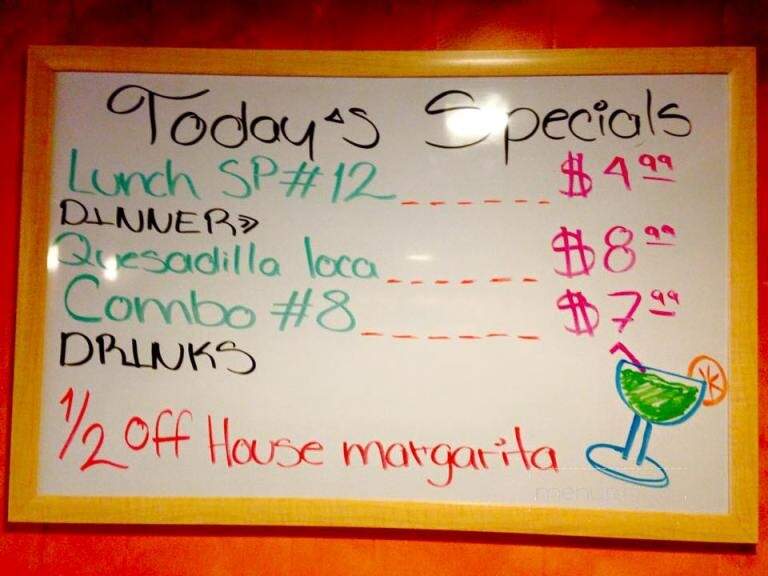 Today's Specials
Lunch SP#12 ------ $4.99
DINNER»
Quesadilla loca ------ $8.99
Combo #8 ------ $7.99
DRINKS
1/2 off House margarita